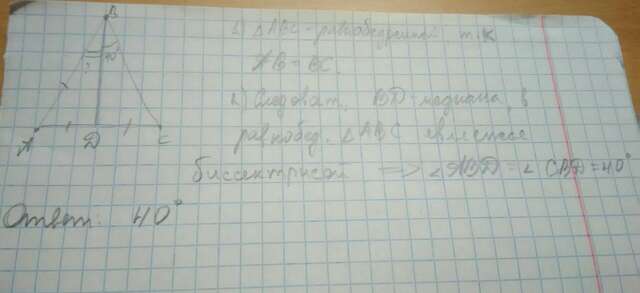 B
1) △ABC - равнобедренный, т.к
AB = BC.
? 40°
2) Следоват. BD - медиана, в
равнобед. △ABC является
A D C
биссектрисой ⟹ ∠ABD = ∠CBD = 40°
Ответ: 40°